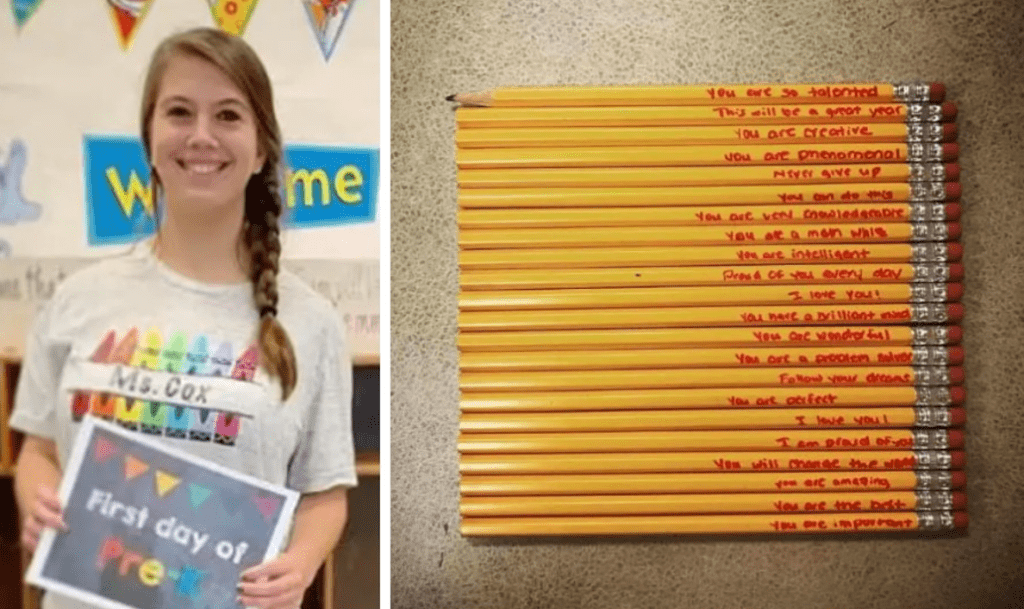 Welcome
Ms. Cox
First day of
Pre-K
You are so talented
This will be a great year
You are creative
you are phenomenal
Never give up
You can do this
You are very knowledgeable
You are a math whiz
You are intelligent
Proud of you every day
I love you!
You have a brilliant mind
You are wonderful
You are a problem solver
Follow your dreams
You are perfect
I love you!
I am proud of you
You will change the world
you are amazing
You are the best
You are important